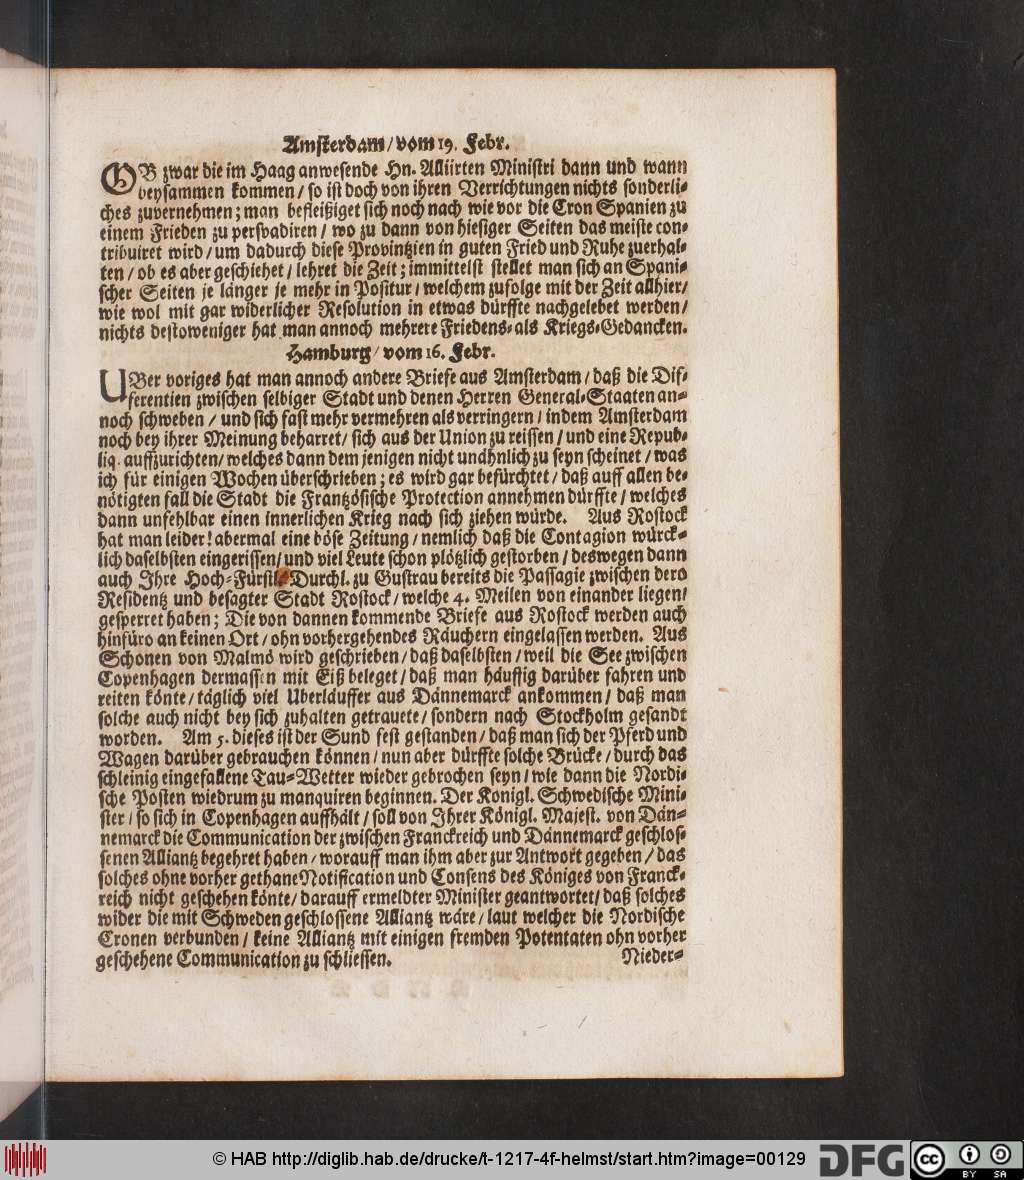 Amsterdam / vom 19. Febr.
OB zwar die im Haag anwesende Hn. Alliirten Ministri dann und wann
beysammen kommen / so ist doch von ihren Verrichtungen nichts sonderli-
ches zuvernehmen; man befleißiget sich noch nach wie vor die Cron Spanien zu
einem Frieden zu persvadiren / wo zu dann von hiesiger Seiten das meiste con-
tribuiret wird / um dadurch diese Provintzien in guten Fried und Ruhe zuerhal-
ten / ob es aber geschiehet / lehret die Zeit; immittelst stellet man sich an Spani-
scher Seiten je länger je mehr in Positur / welchem zufolge mit der Zeit allhier/
wie wol mit gar widerlicher Resolution in etwas dürffte nachgelebet werden/
nichts destoweniger hat man annoch mehrere Friedens- als Kriegs-Gedancken.
Hamburg / vom 16. Febr.
UBer voriges hat man annoch andere Briefe aus Amsterdam / daß die Dif-
ferentien zwischen selbiger Stadt und denen Herren General-Staaten an-
noch schweben / und sich fast mehr vermehren als verringern / indem Amsterdam
noch bey ihrer Meinung beharret / sich aus der Union zu reissen / und eine Repub-
liq. auffzurichten / welches dann dem jenigen nicht unähnlich zu seyn scheinet / was
ich für einigen Wochen überschrieben; es wird gar befürchtet / daß auff allen be-
nötigten fall die Stadt die Frantzösische Protection annehmen dürffte / welches
dann unfehlbar einen innerlichen Krieg nach sich ziehen würde. Aus Rostock
hat man leider! abermal eine böse Zeitung / nemlich daß die Contagion würck-
lich daselbsten eingerissen / und viel Leute schon plötzlich gestorben / deswegen dann
auch Ihre Hoch-Fürstl. Durchl. zu Gustrau bereits die Passagie zwischen dero
Residentz und besagter Stadt Rostock / welche 4. Meilen von einander liegen/
gesperret haben; Die von dannen kommende Briefe aus Rostock werden auch
hinfüro an keinen Ort / ohn vorhergehendes Räuchern eingelassen werden. Aus
Schonen von Malmö wird geschrieben / daß daselbsten / weil die See zwischen
Copenhagen dermassen mit Eiß beleget / daß man häuffig darüber fahren und
reiten könte / täglich viel Uberläuffer aus Dännemarck ankommen / daß man
solche auch nicht bey sich zuhalten getrauete / sondern nach Stockholm gesandt
worden. Am 5. dieses ist der Sund fest gestanden / daß man sich der Pferd und
Wagen darüber gebrauchen können / nun aber dürffte solche Brücke / durch das
schleinig eingefallene Tau-Wetter wieder gebrochen seyn / wie dann die Nordi-
sche Posten wiedrum zu manquiren beginnen. Der Königl. Schwedische Mini-
ster / so sich in Copenhagen auffhält / soll von Ihrer Königl. Majest. von Dän-
nemarck die Communication der zwischen Franckreich und Dännemarck geschlos-
senen Alliantz begehret haben / worauff man ihm aber zur Antwort gegeben / das
solches ohne vorher gethane Notification und Consens des Königes von Franck-
reich nicht geschehen könte / darauff ermeldter Minister geantwortet / daß solches
wider die mit Schweden geschlossene Alliantz wäre / laut welcher die Nordische
Cronen verbunden / keine Alliantz mit einigen fremden Potentaten ohn vorher
geschehene Communication zu schliessen.
Nieder-
© HAB http://diglib.hab.de/drucke/t-1217-4f-helmst/start.htm?image=00129
DFG
cc
BY SA